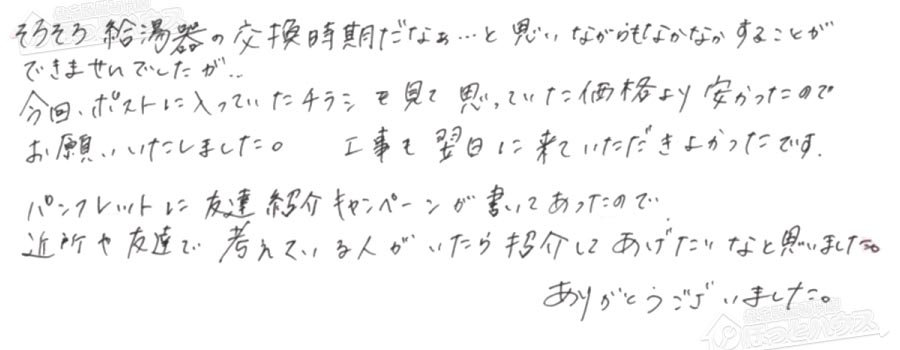 そろそろ給湯器の交換時期だなぁ…と思いながらもなかなかすることが
できませんでしたが、、
今回、ポストに入っていたチラシを見て思っていた価格より安かったので
お願いいたしました。 工事も翌日に来ていただきよかったです。
パンフレットに友達紹介キャンペーンが書いてあったので
近所や友達で考えている人がいたら紹介してあげたいなと思いました。
ありがとうございました。
ほっとハウス